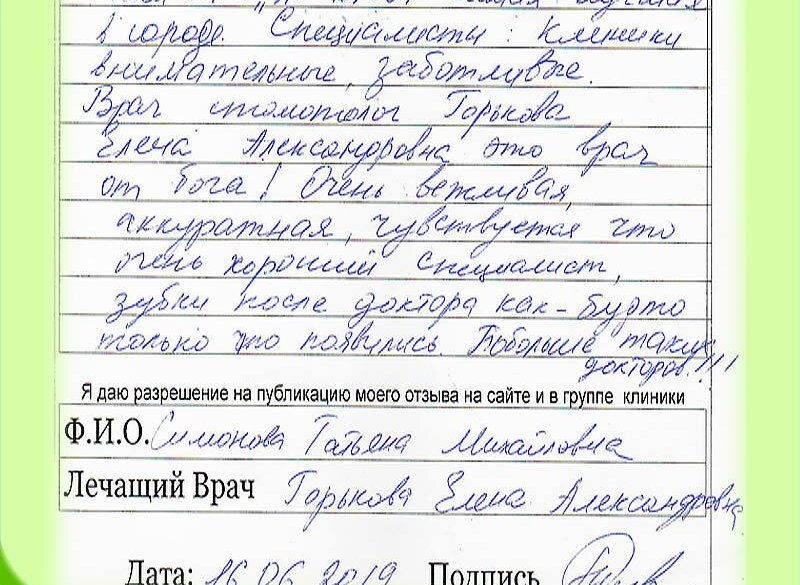 самая лучшая
в городе. Специалисты клиники
внимательные, заботливые.
Врач стоматолог Горькова
Елена Александровна это врач
от бога! Очень вежливая,
аккуратная, чувствуется что
очень хороший специалист,
зубки после доктора как-будто
только что появились. Побольше таких
докторов!!!
Я даю разрешение на публикацию моего отзыва на сайте и в группе клиники
Ф.И.О. Симонова Татьяна Михайловна
Лечащий Врач Горькова Елена Александровна
Дата: 16.06.2019 Подпись